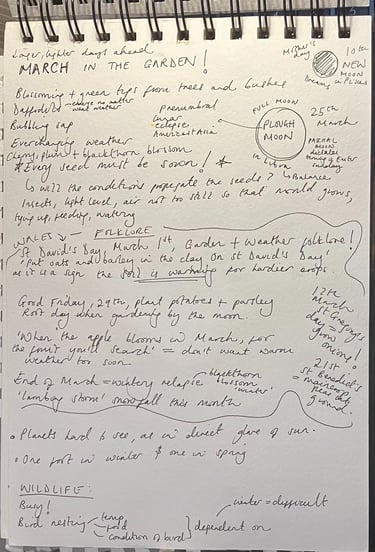 Longer, lighter days ahead
MARCH IN THE GARDEN!
Mother's day
10th
NEW MOON
in Pisces
Blossoming + green tips from trees and bushes
Daffodils - emerge no matter what weather
Bubbling sap
penumbral lunar eclipse
Americas + Asia
FULL MOON
PLOUGH MOON
in Libra
Balance
25th March
PASCHAL MOON
dictates timing of Easter
Everchanging weather
Cherry, plum + blackthorn blossom
*Every seed must be sown! *
↳ will the conditions propagate the seeds?
Insects, light level, air not too still so that mould grows,
tying up, feeding, watering
WALES ↓ - FOLKLORE
St David's Day, March 1st, Garden + weather folklore!
'Put oats and barley in the clay on St David's Day'
as it is a sign the soil is warming for hardier crops.
Good Friday, 29th, plant potatoes + parsley
Root day when gardening by the moon.
'When the apple blooms in March, for
the fruit you'll search' = don't want warm
weather too soon.
End of March = wintery relapse 'blackthorn blossom winter'
'lambing storm' snowfall this month
12th March
St Gregory's day =
grow onions!
21st
St Benedict's =
near the ground.
• Planets hard to see, as in direct glare of sun.
• One foot in winter & one in spring
WILDLIFE:
Busy!
Bird nesting
temp
food
condition of bird
} dependent on
winter = difficult